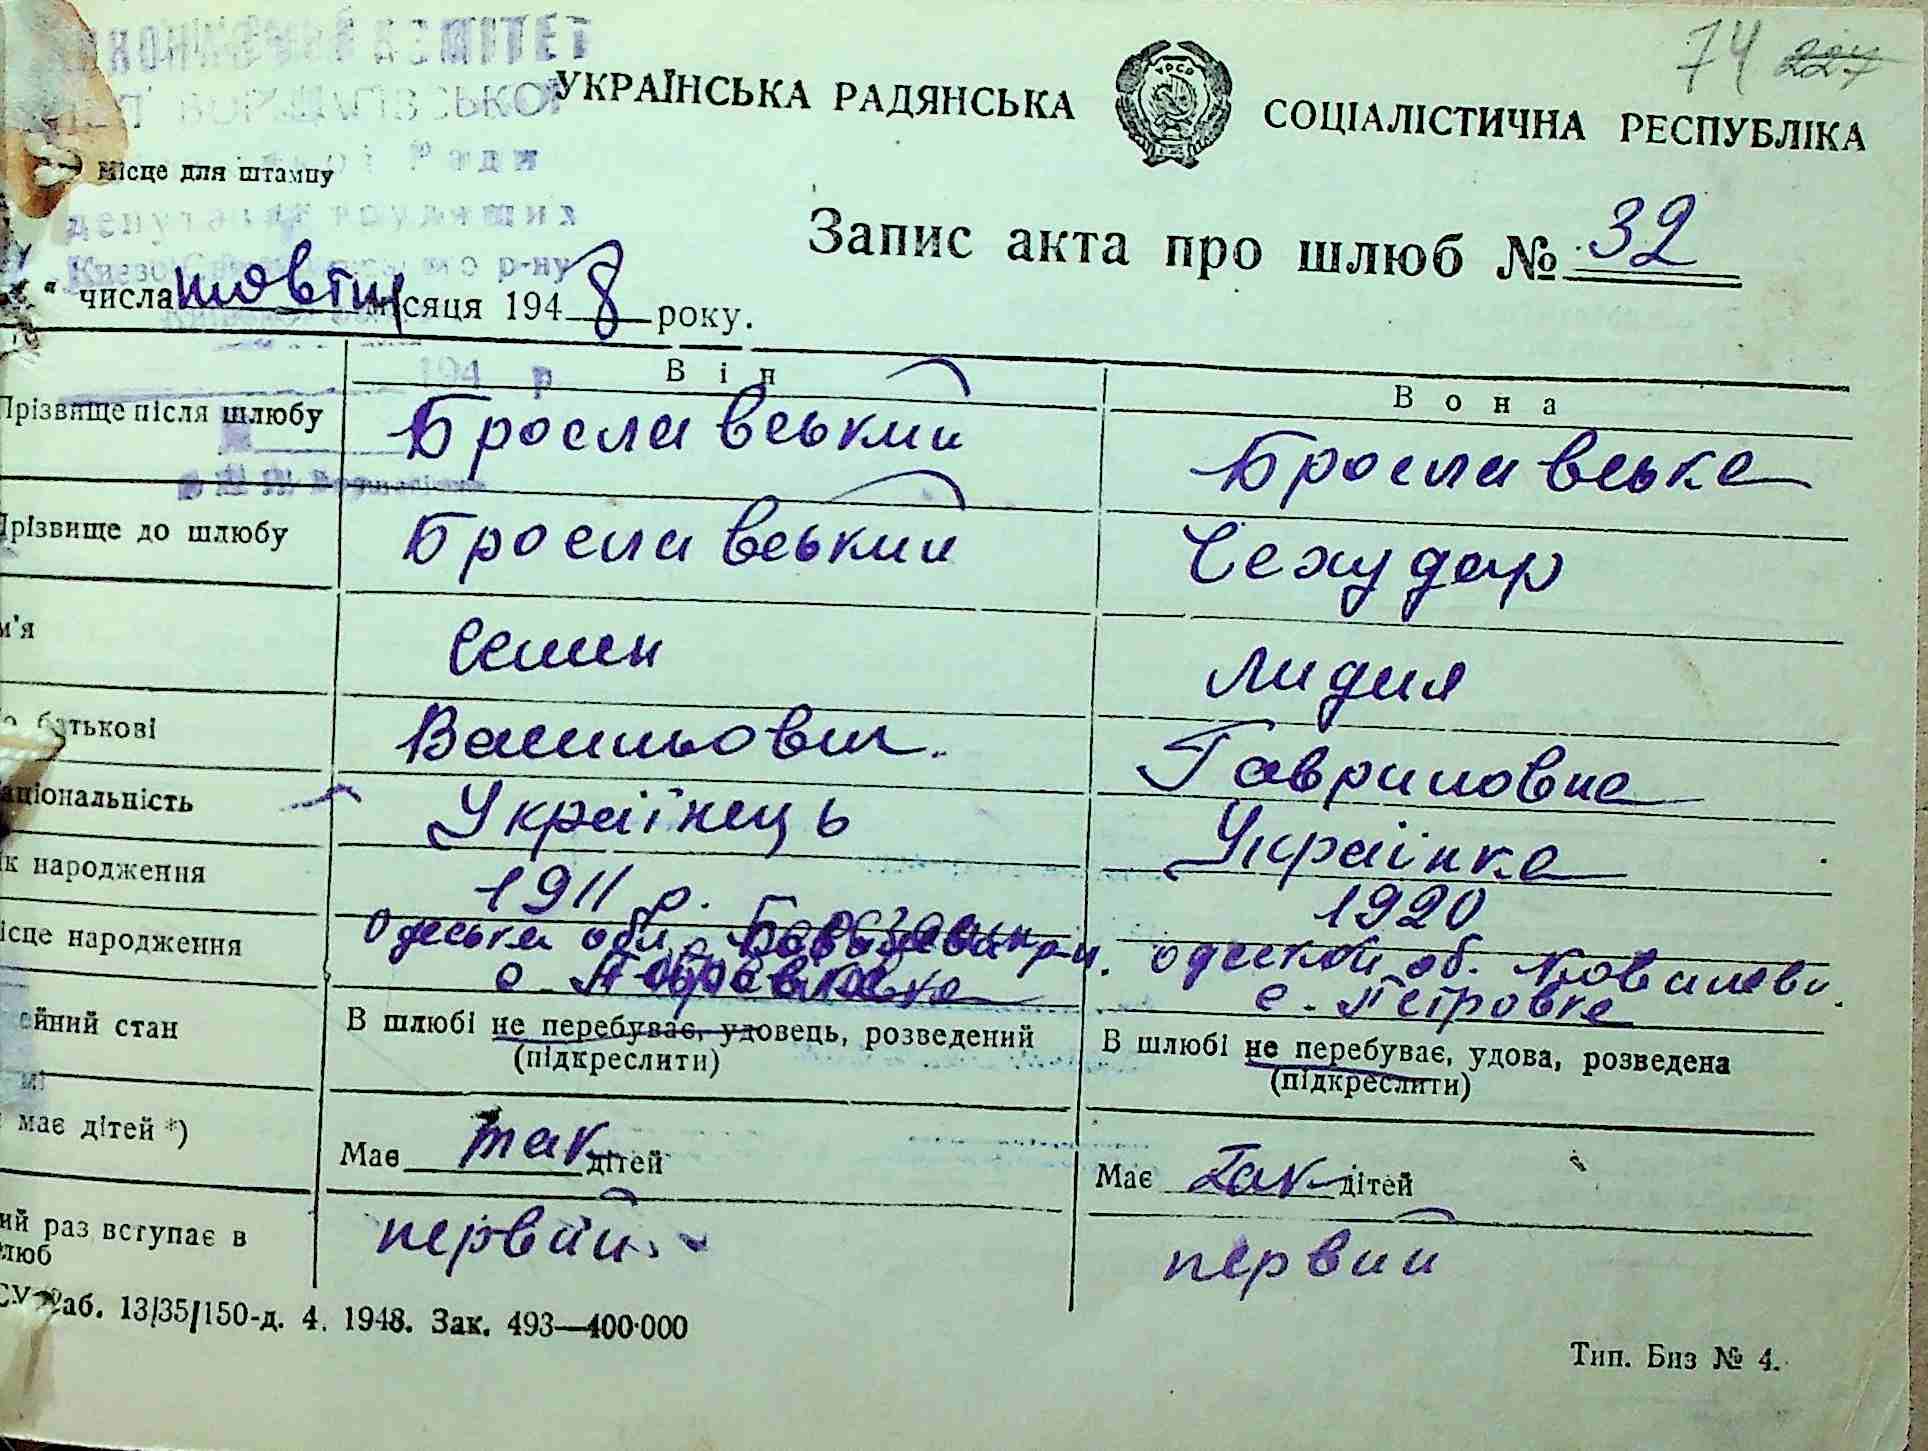 74 227
ВИКОНАВЧИЙ КОМІТЕТ
БОРЩАГІВСЬКОЇ
Ради
депутатів трудящих
р-ну
194 р
УКРАЇНСЬКА РАДЯНСЬКА СОЦІАЛІСТИЧНА РЕСПУБЛІКА
Місце для штампу
Запис акта про шлюб № 32
" числа жовтн місяця 1948 року.
Він Вона
Прізвище після шлюбу Брославський Брославська
Прізвище до шлюбу Брославський Чехудар
м'я Семен Лидия
о батькові Васильович. Гавриловна
аціональність Українець Українка
ік народження 1911 р. 1920
ісце народження Одеська обл. р-н. Одеской об.
с. с. Петровка
ейний стан В шлюбі не перебуває, удовець, розведений В шлюбі не перебуває, удова, розведена
(підкреслити) (підкреслити)
має дітей *) Має так дітей Має Так дітей
ий раз вступає в первий первий
люб
аб. 13/35/150-д. 4. 1948. Зак. 493—400.000
Тип. Биз № 4.